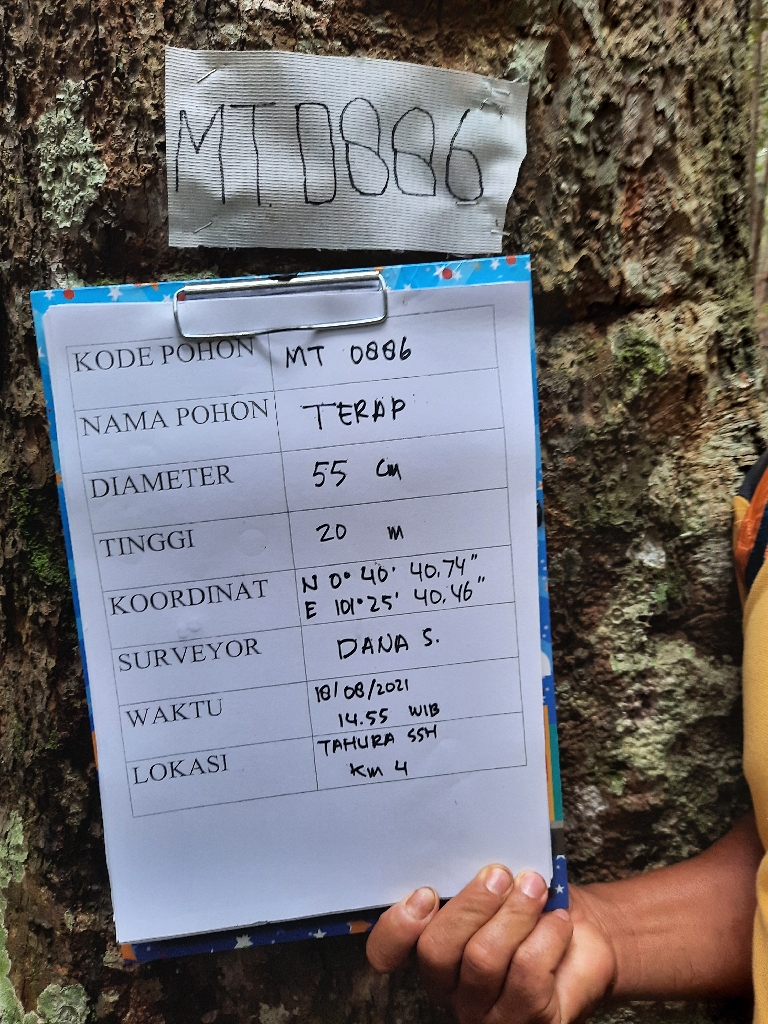 MT.0886
KODE POHON MT 0886
NAMA POHON TERAP
DIAMETER 55 cm
TINGGI 20 m
KOORDINAT N 0° 40' 40.74"
E 101° 25' 40.46"
SURVEYOR DANA S.
WAKTU 18/08/2021
14.55 WIB
LOKASI TAHURA SSH
Km 4